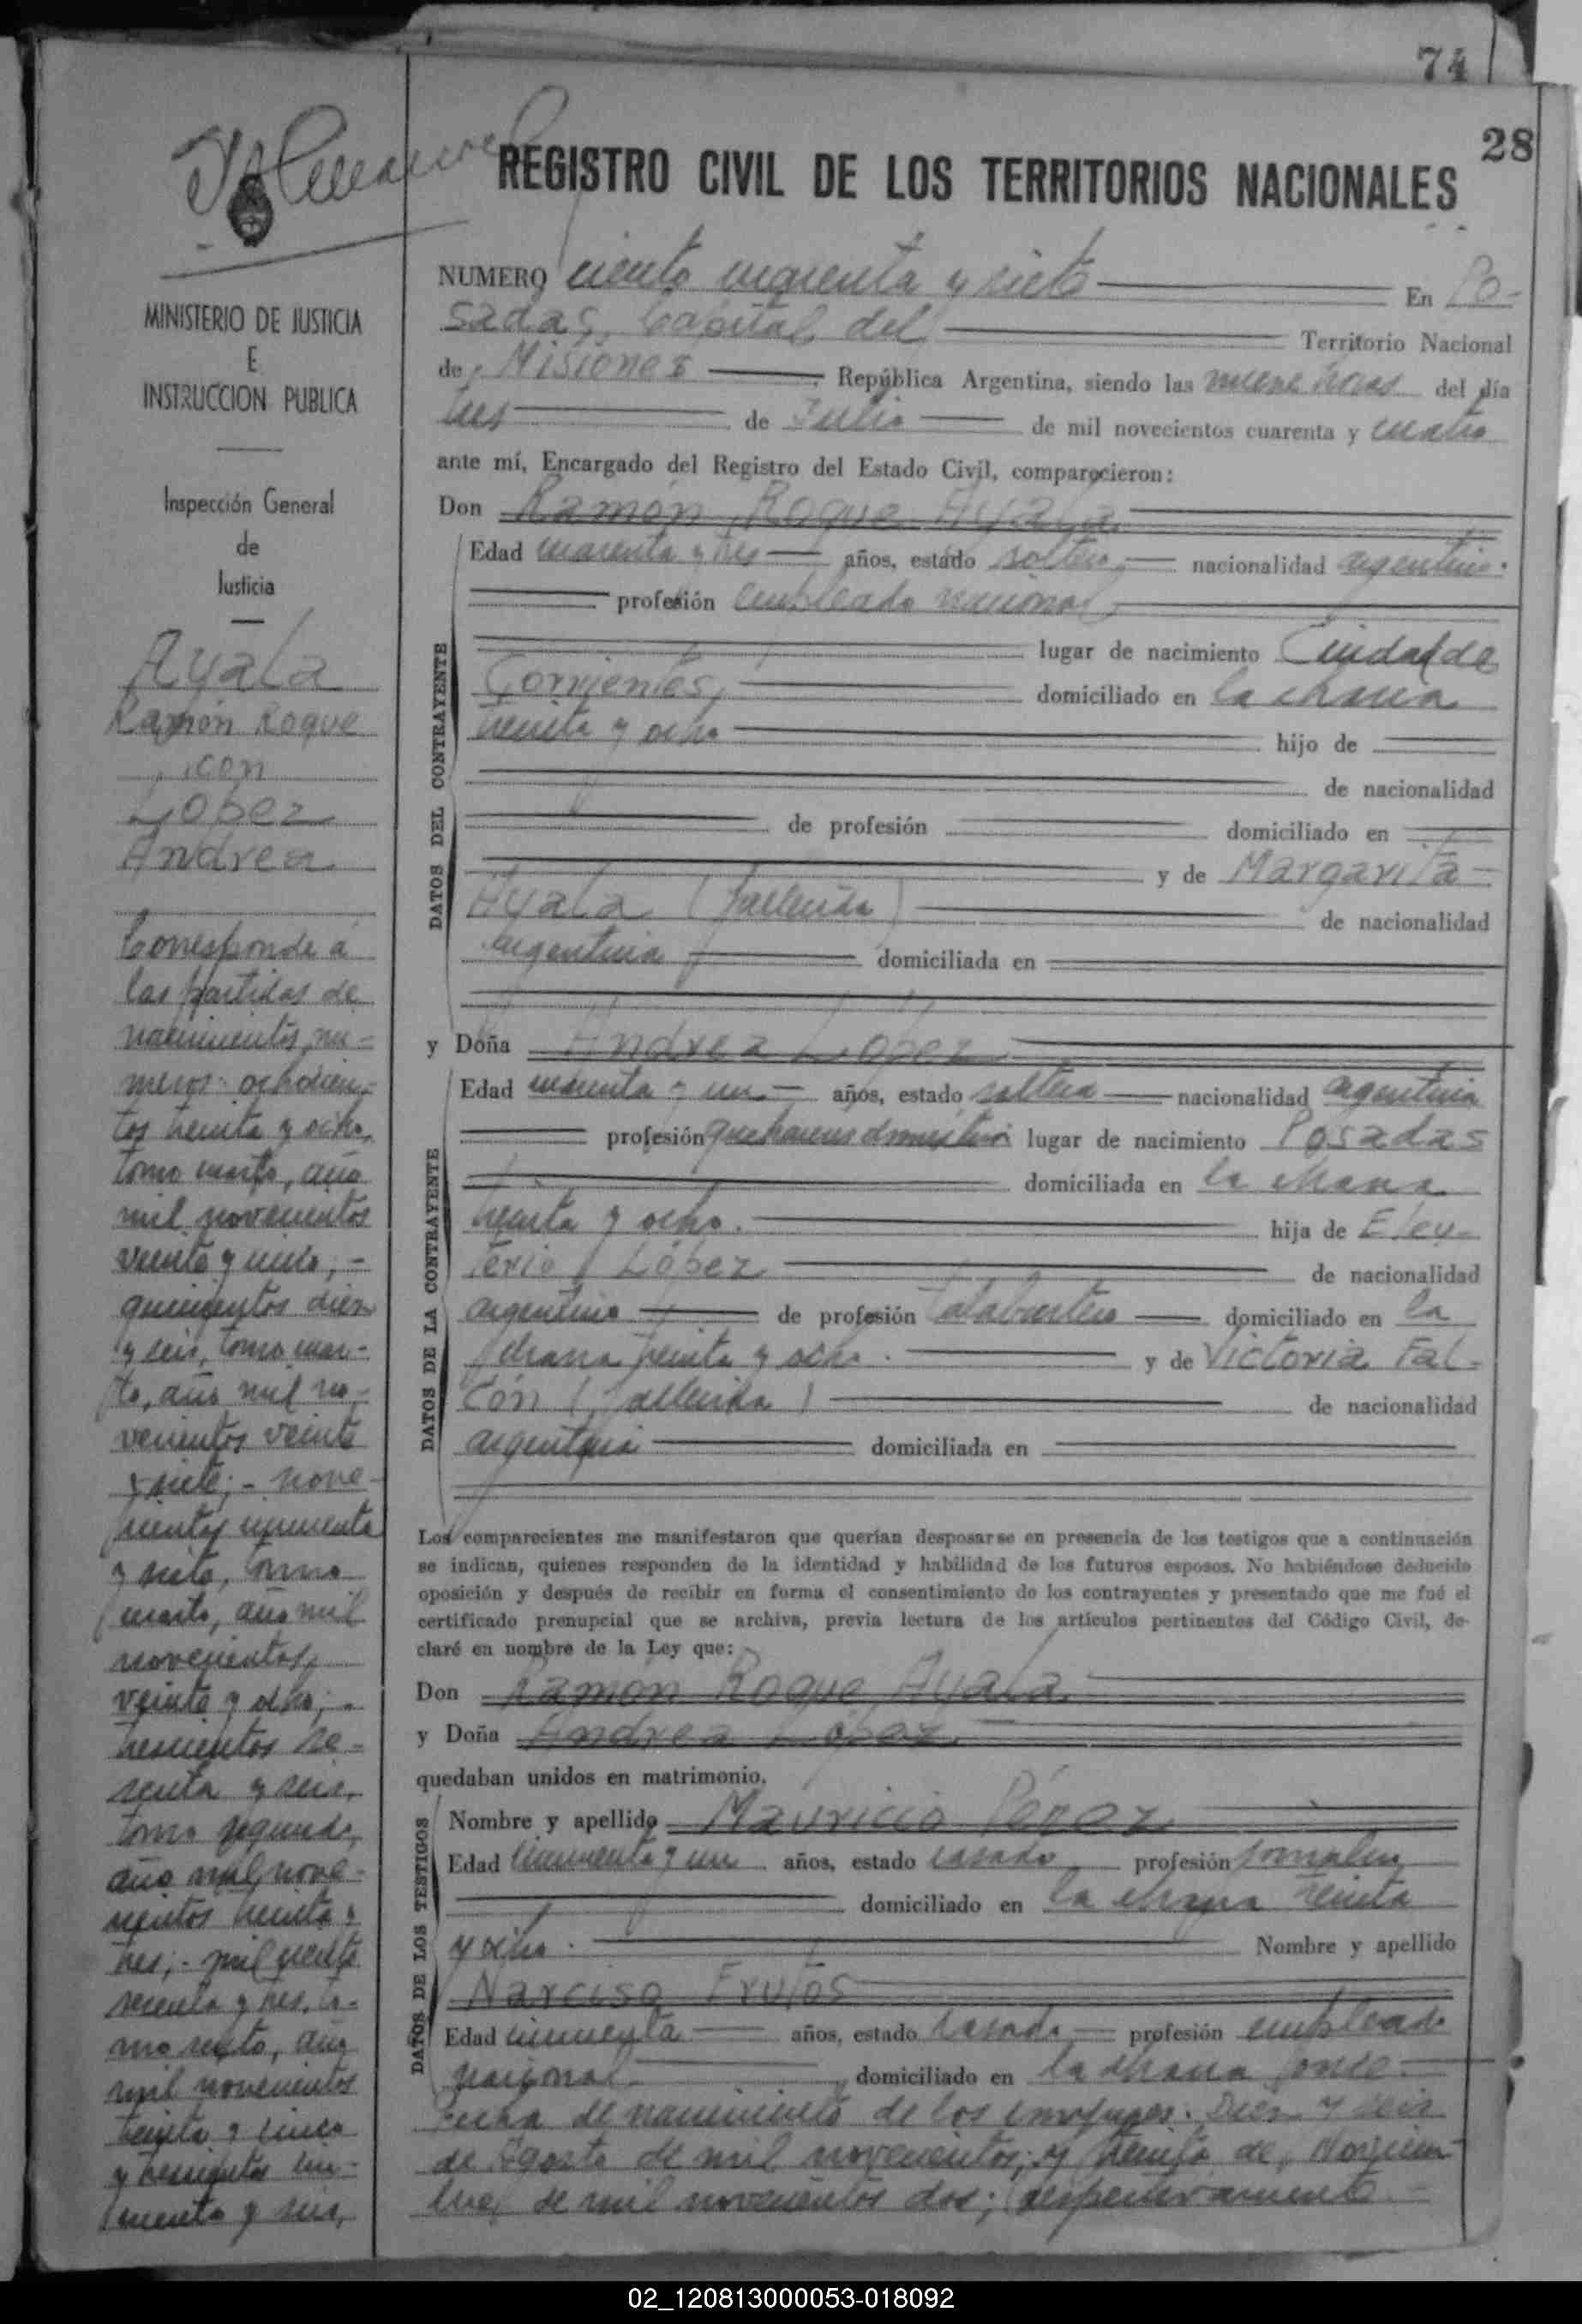 74
28
REGISTRO CIVIL DE LOS TERRITORIOS NACIONALES
MINISTERIO DE JUSTICIA
E
INSTRUCCION PUBLICA
Inspección General
de
Justicia
Ayala
Ramón Roque
con
López
Andrea
Corresponde á
las partidas de
nacimientos, nu-
meros: ochocien-
tos treinta y ocho,
tomo cuarto, año
mil novecientos
veinte y cinco; -
quinientos diez
y seis, tomo cuar-
to, año mil no-
vecientos veinte
y siete; - nove-
cientos cincuenta
y siete, tomo
cuarto, año mil
novecientos
veinte y ocho; -
trescientos se-
senta y seis,
tomo segundo,
año mil nove-
cientos treinta y
tres; - mil ciento
sesenta y tres, to-
mo sexto, año
mil novecientos
treinta y cinco
y trescientos cin-
cuenta y seis,
NUMERO ciento cincuenta y siete En Po-
sadas, Capital del Territorio Nacional
de Misiones, República Argentina, siendo las nueve horas del día
tres de Julio de mil novecientos cuarenta y cuatro
ante mí, Encargado del Registro del Estado Civil, comparecieron:
Don Ramón Roque Ayala
DATOS DEL CONTRAYENTE
Edad cuarenta y tres años, estado soltero, nacionalidad argentino.
profesión empleado nacional,
lugar de nacimiento Ciudad de
Corrientes, domiciliado en la chacra
treinta y ocho hijo de
de nacionalidad
de profesión domiciliado en
y de Margarita
Ayala (fallecida) de nacionalidad
argentina domiciliada en
y Doña Andrea López
DATOS DE LA CONTRAYENTE
Edad cuarenta y un años, estado soltera nacionalidad argentina
profesión quehaceres domésticos lugar de nacimiento Posadas
domiciliada en la chacra
treinta y ocho. hija de Eleu-
terio López de nacionalidad
argentino de profesión talabartero domiciliado en la
chacra treinta y ocho. y de Victoria Fal-
cón (fallecida) de nacionalidad
argentina domiciliada en
Los comparecientes me manifestaron que querían desposarse en presencia de los testigos que a continuación
se indican, quienes responden de la identidad y habilidad de los futuros esposos. No habiéndose deducido
oposición y después de recibir en forma el consentimiento de los contrayentes y presentado que me fué el
certificado prenupcial que se archiva, previa lectura de los artículos pertinentes del Código Civil, de-
claré en nombre de la Ley que:
Don Ramón Roque Ayala
y Doña Andrea López
quedaban unidos en matrimonio.
DATOS DE LOS TESTIGOS
Nombre y apellido Mauricio Pérez
Edad cincuenta y un años, estado casado profesión jornalero
domiciliado en la chacra treinta
y ocho. Nombre y apellido
Narciso Frutos
Edad cincuenta años, estado casado profesión empleado
nacional domiciliado en la chacra once.
Fecha de nacimiento de los cónyuges: Diez y seis
de Agosto de mil novecientos; y treinta de Noviem-
bre de mil novecientos dos; respectivamente.
02_120813000053-018092